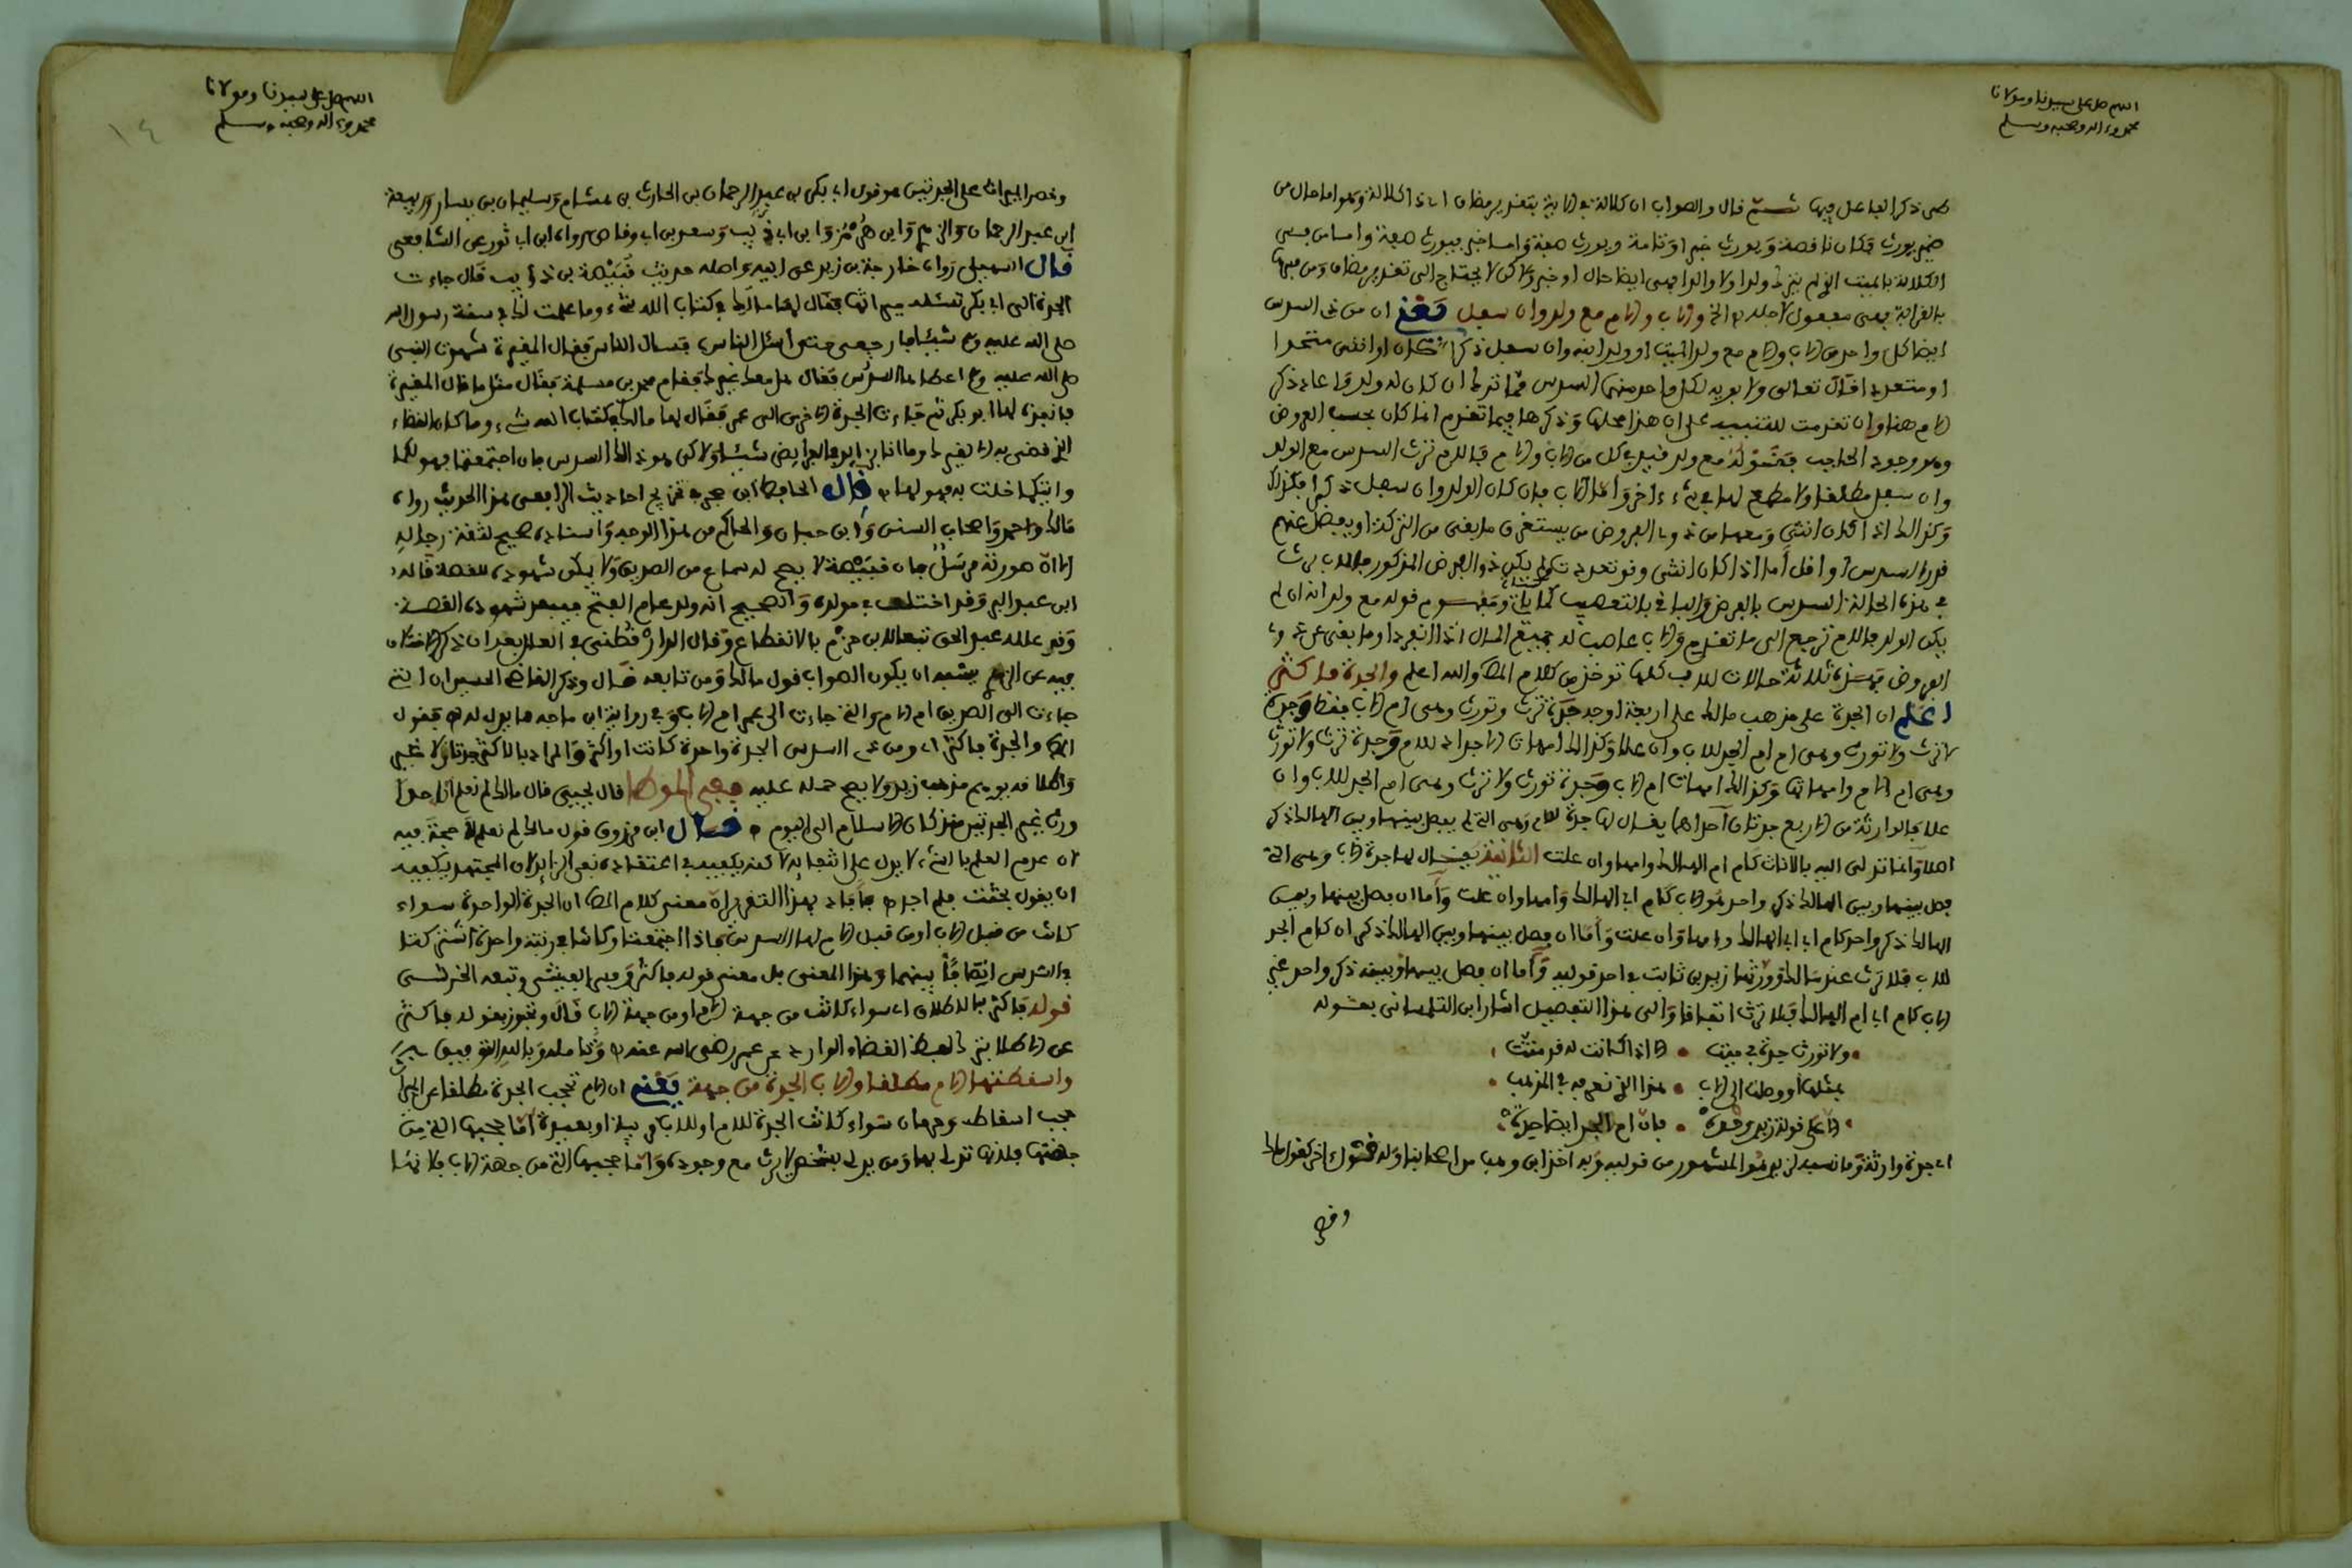 اللهم صل على سيدنا ومولانا
محمد وءاله وصحبه وسلم
ضمير يورث وكان ناقصة ويورث خبر او تامة ويورث صفة واما خبر فيورث صفة واما من فسر
بالقرابة فهى مفعول لاجله والاب والام مع ولد وان سفل يعنى ان من ذى السدس
ايضا كل واحد من الاب والام مع ولد الميت او ولد ابنه وان سفل ذكرا كان او انثى متحدا
او متعددا قال تعالى ولابويه لكل واحد منهما السدس مما ترك ان كان له ولد واعاد ذكر
الام هنا وان تقدمت للتنبيه على ان هذا محلها وذكرها فيما تقدم انما كان بحسب العروض
وهو وجود الحاجب فقوله مع ولد قيد في كل من الاب والام فالام ترث السدس مع الولد
وان سفل مطلقا ولا مطمع لها في شىء ءاخر واما الاب فان كان الولد وان سفل ذكرا فكذلك
وكذلك اذا كان انثى ومعها من ذوى الفروض من يستغرق ما بقى من التركة او يفضل عنهم
قدر السدس او اقل اما اذا كان انثى او تعددت ولم يكن ذو الفرض المذكور فللاب يرث
في هذه الحالة السدس بالفرض والباقى بالتعصيب كما ياتى ومفهوم قوله مع ولد انه ان لم
يكن الولد فالام ترجع الى ما تقدم والاب عاصب له جميع المال اذا انفرد او ما بقى عن ذوى
الفروض فهذه ثلاثة حالات للاب كلها توخذ من كلام المص والله اعلم والجدة فاكثر
اعلم ان الجدة على مذهب مالك على اربعة اوجه جدة ترث وتورث وهى ام الاب فقط وجدة
لا ترث ولا تورث وهى ام ام الجد للاب وان علا وكذلك امهات الاجداد للام وجدة ترث ولا تورث
وهى ام الام وامهاتها وكذلك امهات ام الاب وجدة تورث ولا ترث وهى ام الجد للاب وان
علا فالوارثة من الاربع جدتان احداهما يقال لها جدة للام وهى التى لم يفصل بينها وبين الهالك ذكر
اصلا وانما تدلى اليه بالاناث كام ام الهالك وامها وان علت الثانية يقال لها جدة الاب وهى التى
فصل بينها وبين الهالك ذكر واحد هو الاب كام اب الهالك وامها وان علت واما ان فصل بينها وبين
الهالك ذكر واحد كام اب اب الهالك وامها وان علت واما ان فصل بينها وبين الهالك ذكران كام الجد
للاب فلا ترث عند مالك وورثها زيد بن ثابت في احد قوليه واما ان فصل بينها وبينه ذكر واحد غير
الاب كام اب ام الهالك فلا ترث اتفاقا والى هذا التفصيل اشار ابن التلمسانى بقوله
ولا تورث جدة في ميت الا اذا كانت له قد متت
بمثلها او وصلت الى الاب هذا الذى نعرفه في المذهب
الا على قولة زيد وحده فان ام الجد ايضا جدة
اى جدة وارثة وما نسبه لزيد هو المشهور من قوليه وبه اخذ ابن وهب من اصحابنا وله قول ءاخر كقول مالك
وقصر
١٤
اللهم صل على سيدنا ومولانا
محمد وءاله وصحبه وسلم
وقصر الميراث على الجدتين هو قول ابى بكر بن عبد الرحمان بن الحارث بن هشام وسليمان بن يسار وربيعة
ابن عبد الرحمان والزهرى وابن هرمز وابن ابى ذيب وسعد بن ابى وقاص رواه ابن ابى ثور عن الشافعى
قال السهيلى رواه خارجة بن زيد عن ابيه واصله حديث قبيصة بن ذؤيب قال جاءت
الجدة الى ابى بكر تسئله ميراثها فقال لها مالك في كتاب الله شىء وما علمت لك في سنة رسول الله
صلى الله عليه وسلم شيئا فارجعى حتى اسئل الناس فسال الناس فقال المغيرة شهدت النبى
صلى الله عليه وسلم اعطاها السدس فقال هل معك غيرك فقام محمد بن مسلمة فقال مثل ما قال المغيرة
فانفذه لها ابو بكر ثم جاءت الجدة الاخرى الى عمر فقال لها مالك في كتاب الله شىء وما كان القضاء
الذى قضى به الا لغيرك وما انا بزايد في الفرايض شيئا ولاكن هو ذلك السدس فان اجتمعتما فهو لكما
وايتكما خلت به فهو لها قال الحافظ ابن حجر في تخريج احاديث الرافعى هذا الحديث رواه
مالك واحمد واصحاب السنن وابن حبان والحاكم من هذا الوجه واسناده صحيح لثقة رجاله
الا ان صورته مرسل فان قبيصة لا يصح له سماع من الصديق ولا يمكن شهوده القصة قاله
ابن عبد البر وقد اختلف في مولده والصحيح انه ولد عام الفتح فيبعد شهوده القصة
وقد علله عبد الحق تبعا لابن حزم بالانقطاع وقال الدارقطنى في العلل بعد ان ذكر الاختلاف
فيه عن الزهرى يشبه ان يكون الصواب قول مالك ومن تابعه قال وذكر القاضى الحسين ان التى
جاءت الى الصديق ام الام والتى جاءت الى عمر ام الاب وفي رواية ابن ماجه ما يدل له فقول
المص والجدة فاكثر اى ومن ذى السدس الجدة واحدة كانت او اكثر والمراد بالاكثر جدتان لا غير
واطلاقه يوهم مذهب زيد ولا يصح حمله عليه ففى الموطا قال يحيى قال مالك لم نعلم احدا
ورث غير الجدتين منذ كان الاسلام الى اليوم قال ابن مرزوق قول مالك لم نعلم لا حجة فيه
لان عدم العلم بالشىء لا يدل على انتفائه
ان يقول بحثت فلم اجد فافاد بهذا التقرير ان معنى كلام المص ان الجدة الواحدة سواء
كانت من قبل الاب او من قبل الام لها السدس فاذا اجتمعتا وكانتا في رتبة واحدة اشتركتا
في السدس انصافا بينهما وهذا المعنى هل معنى قوله فاكثر وفسر الفيشى وتبعه الخرشى
قوله فاكثر بالاطلاق اى سواء كانت من جهة الام او من جهة الاب قال وتجوز بقوله فاكثر
عن الاطلاق لفظ القضاء الوارد عن عمر رضى الله عنه وتامله وبالله التوفيق
واسقطتها الام مطلقا والاب الجدة من جهته يعنى ان الام تحجب الجدة مطلقا عن الميراث
حجب اسقاط وحرمان سواء كانت الجدة للام او للاب قريبة او بعيدة اما حجبها التى من
جهتها فلانها تدلى بها ومن يدلى بشخص لا يرث مع وجوده واما حجبها التى من جهة الاب فلانها